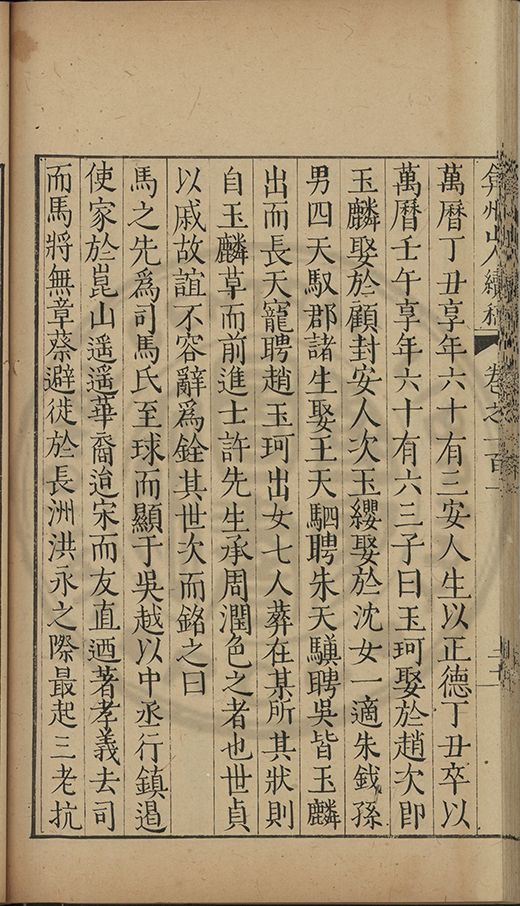 弇州山人續稿 卷之一百一
萬曆丁丑享年六十有三安人生以正德丁丑卒以
萬曆壬午享年六十有六三子曰玉珂娶於趙次即
玉麟娶於顧封安人次玉纓娶於沈女一適朱鉞孫
男四天馭郡諸生娶王天駟聘朱天驥聘吳皆玉麟
出而長天寵聘趙玉珂出女七人葬在某所其狀則
自玉麟草而前進士許先生承周潤色之者也世貞
以戚故誼不容辭為銓其世次而銘之曰
馬之先為司馬氏至球而顯于吳越以中丞行鎮遏
使家於崑山遥遥華裔迨宋而友直迺著孝義去司
而馬將無章蔡避徙於長洲洪永之際最起三老抗